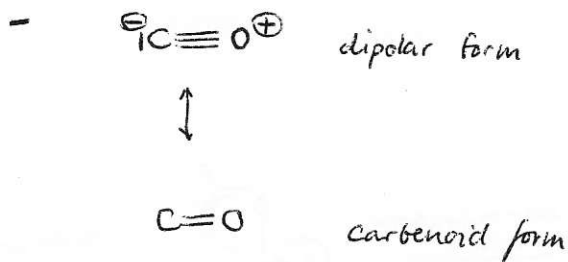 - ⊖IC≡O⊕ dipolar form
↕
C=O carbenoid form